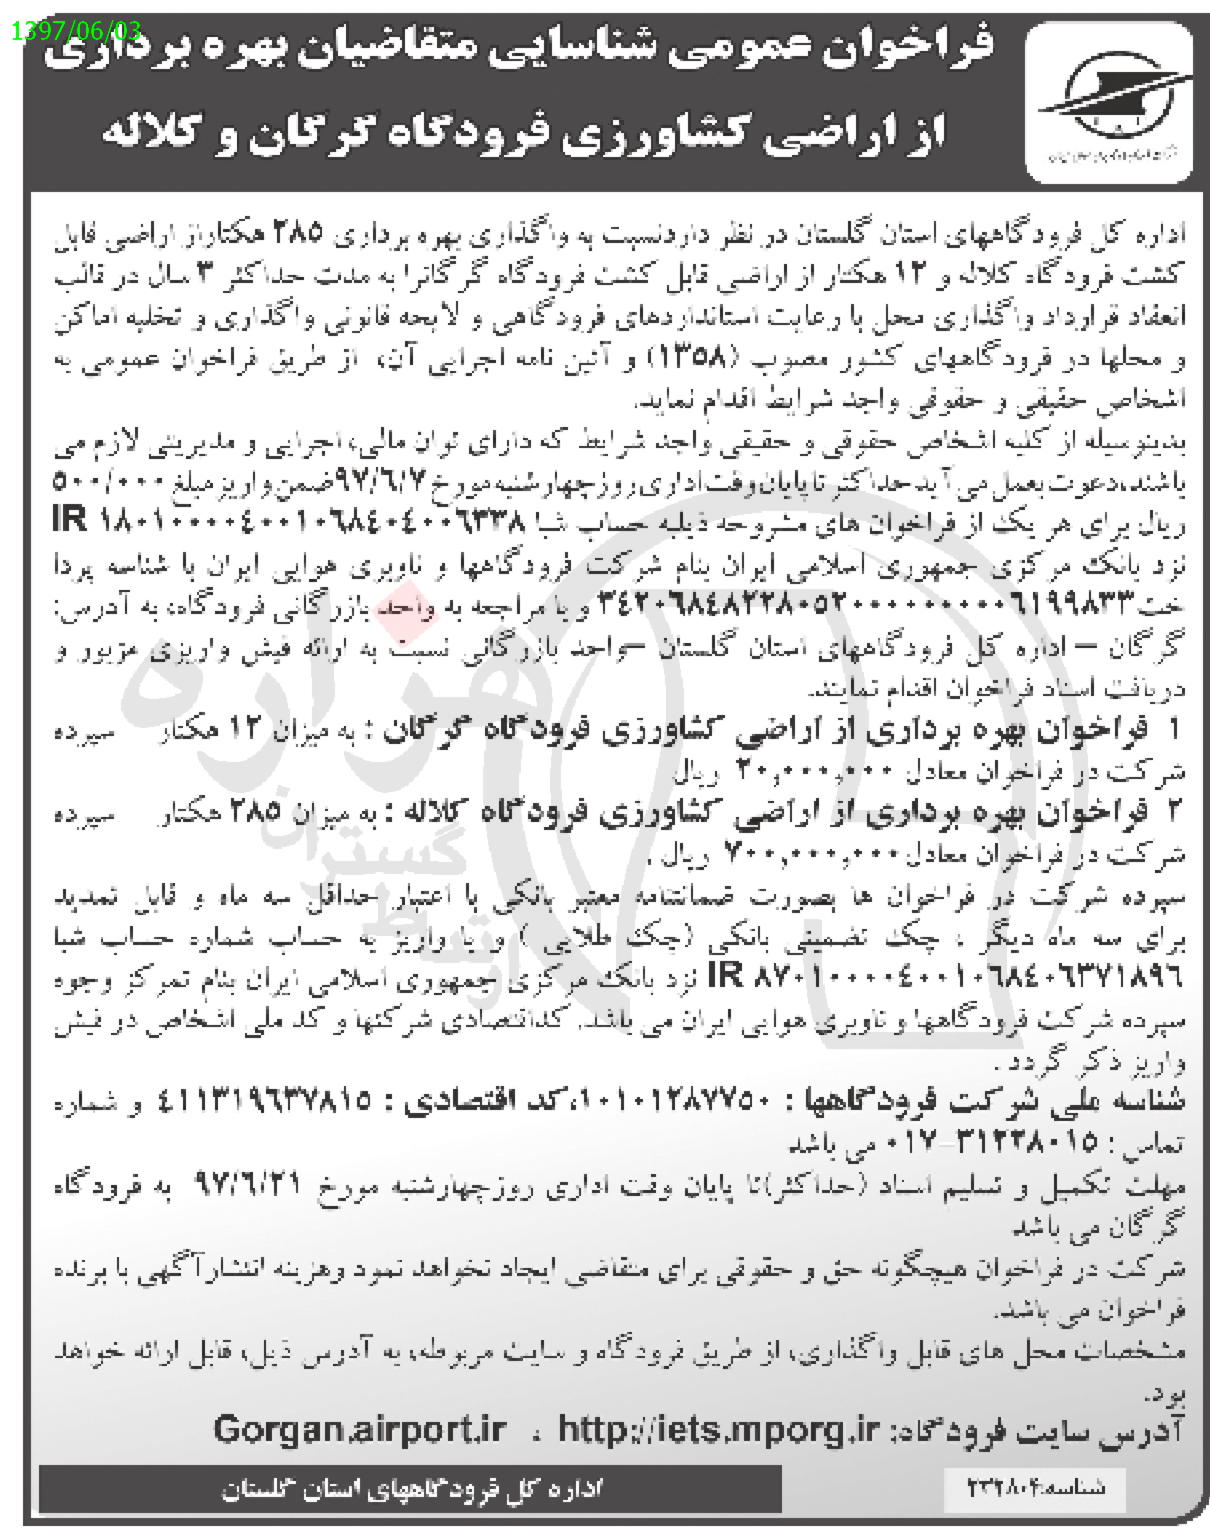 1397/06/03
فراخوان عمومی شناسایی متقاضیان بهره برداری
از اراضی کشاورزی فرودگاه گرگان و کلاله
اداره کل فرودگاههای استان گلستان در نظر داردنسبت به واگذاری بهره برداری ۲۸۵ هکتاراز اراضی قابل
کشت فرودگاه کلاله و ۱۲ هکتار از اراضی قابل کشت فرودگاه گرگانرا به مدت حداکثر ۳ سال در قالب
انعقاد قرارداد واگذاری محل با رعایت استانداردهای فرودگاهی و لایحه قانونی واگذاری و تخلیه اماکن
و محلها در فرودگاههای کشور مصوب (۱۳۵۸) و آئین نامه اجرایی آن، از طریق فراخوان عمومی به
اشخاص حقیقی و حقوقی واجد شرایط اقدام نماید.
بدینوسیله از کلیه اشخاص حقوقی و حقیقی واجد شرایط که دارای توان مالی، اجرایی و مدیریتی لازم می
باشند،دعوت بعمل می آید حداکثر تا پایان وقت اداری روز چهارشنبه مورخ ۹۷/۶/۷ ضمن واریز مبلغ ۵۰۰/۰۰۰
ریال برای هر یک از فراخوان های مشروحه ذیلبه حساب شبا IR ۱۸۰۱۰۰۰۰۴۰۰۱۰۶۸۴۰۴۰۰۶۳۳۸
نزد بانک مرکزی جمهوری اسلامی ایران بنام شرکت فرودگاهها و ناوبری هوایی ایران با شناسه پردا
خت ۳۴۲۰۶۸۴۸۲۲۸۰۵۲۰۰۰۰۰۰۰۰۰۰۶۱۹۹۸۳۳ و با مراجعه به واحد بازرگانی فرودگاه، به آدرس:
گرگان – اداره کل فرودگاههای استان گلستان –واحد بازرگانی نسبت به ارائه فیش واریزی مزبور و
دریافت اسناد فراخوان اقدام نمایند.
۱ فراخوان بهره برداری از اراضی کشاورزی فرودگاه گرگان : به میزان ۱۲ هکتار سپرده
شرکت در فراخوان معادل ۲۰,۰۰۰,۰۰۰ ریال
۲ فراخوان بهره برداری از اراضی کشاورزی فرودگاه کلاله : به میزان ۲۸۵ هکتار سپرده
شرکت در فراخوان معادل ۷۰۰,۰۰۰,۰۰۰ ریال .
سپرده شرکت در فراخوان ها بصورت ضمانتنامه معتبر بانکی با اعتبار حداقل سه ماه و قابل تمدید
برای سه ماه دیگر ، چک تضمینی بانکی (چک طلایی ) و یا واریز به حساب شماره حساب شبا
IR ۸۷۰۱۰۰۰۰۴۰۰۱۰۶۸۴۰۶۳۷۱۸۹۶ نزد بانک مرکزی جمهوری اسلامی ایران بنام تمرکز وجوه
سپرده شرکت فرودگاهها و ناوبری هوایی ایران می باشد. کداقتصادی شرکتها و کد ملی اشخاص در فیش
واریز ذکر گردد .
شناسه ملی شرکت فرودگاهها : ۱۰۱۰۱۲۸۷۷۵۰،کد اقتصادی : ۴۱۱۳۱۹۶۳۷۸۱۵ و شماره
تماس : ۳۱۲۲۸۰۱۵-۰۱۷ می باشد
مهلت تکمیل و تسلیم اسناد (حداکثر)تا پایان وقت اداری روزچهارشنبه مورخ ۹۷/۶/۲۱ به فرودگاه
گرگان می باشد
شرکت در فراخوان هیچگونه حق و حقوقی برای متقاضی ایجاد نخواهد نمود وهزینه انتشارآگهی با برنده
فراخوان می باشد.
مشخصات محل های قابل واگذاری، از طریق فرودگاه و سایت مربوطه، به آدرس ذیل، قابل ارائه خواهد
بود.
آدرس سایت فرودگاه: http://iets.mporg.ir ، Gorgan.airport.ir
اداره کل فرودگاههای استان گلستان
شناسه:۲۳۲۸۰۴
هزاره
گستران
ارتباط